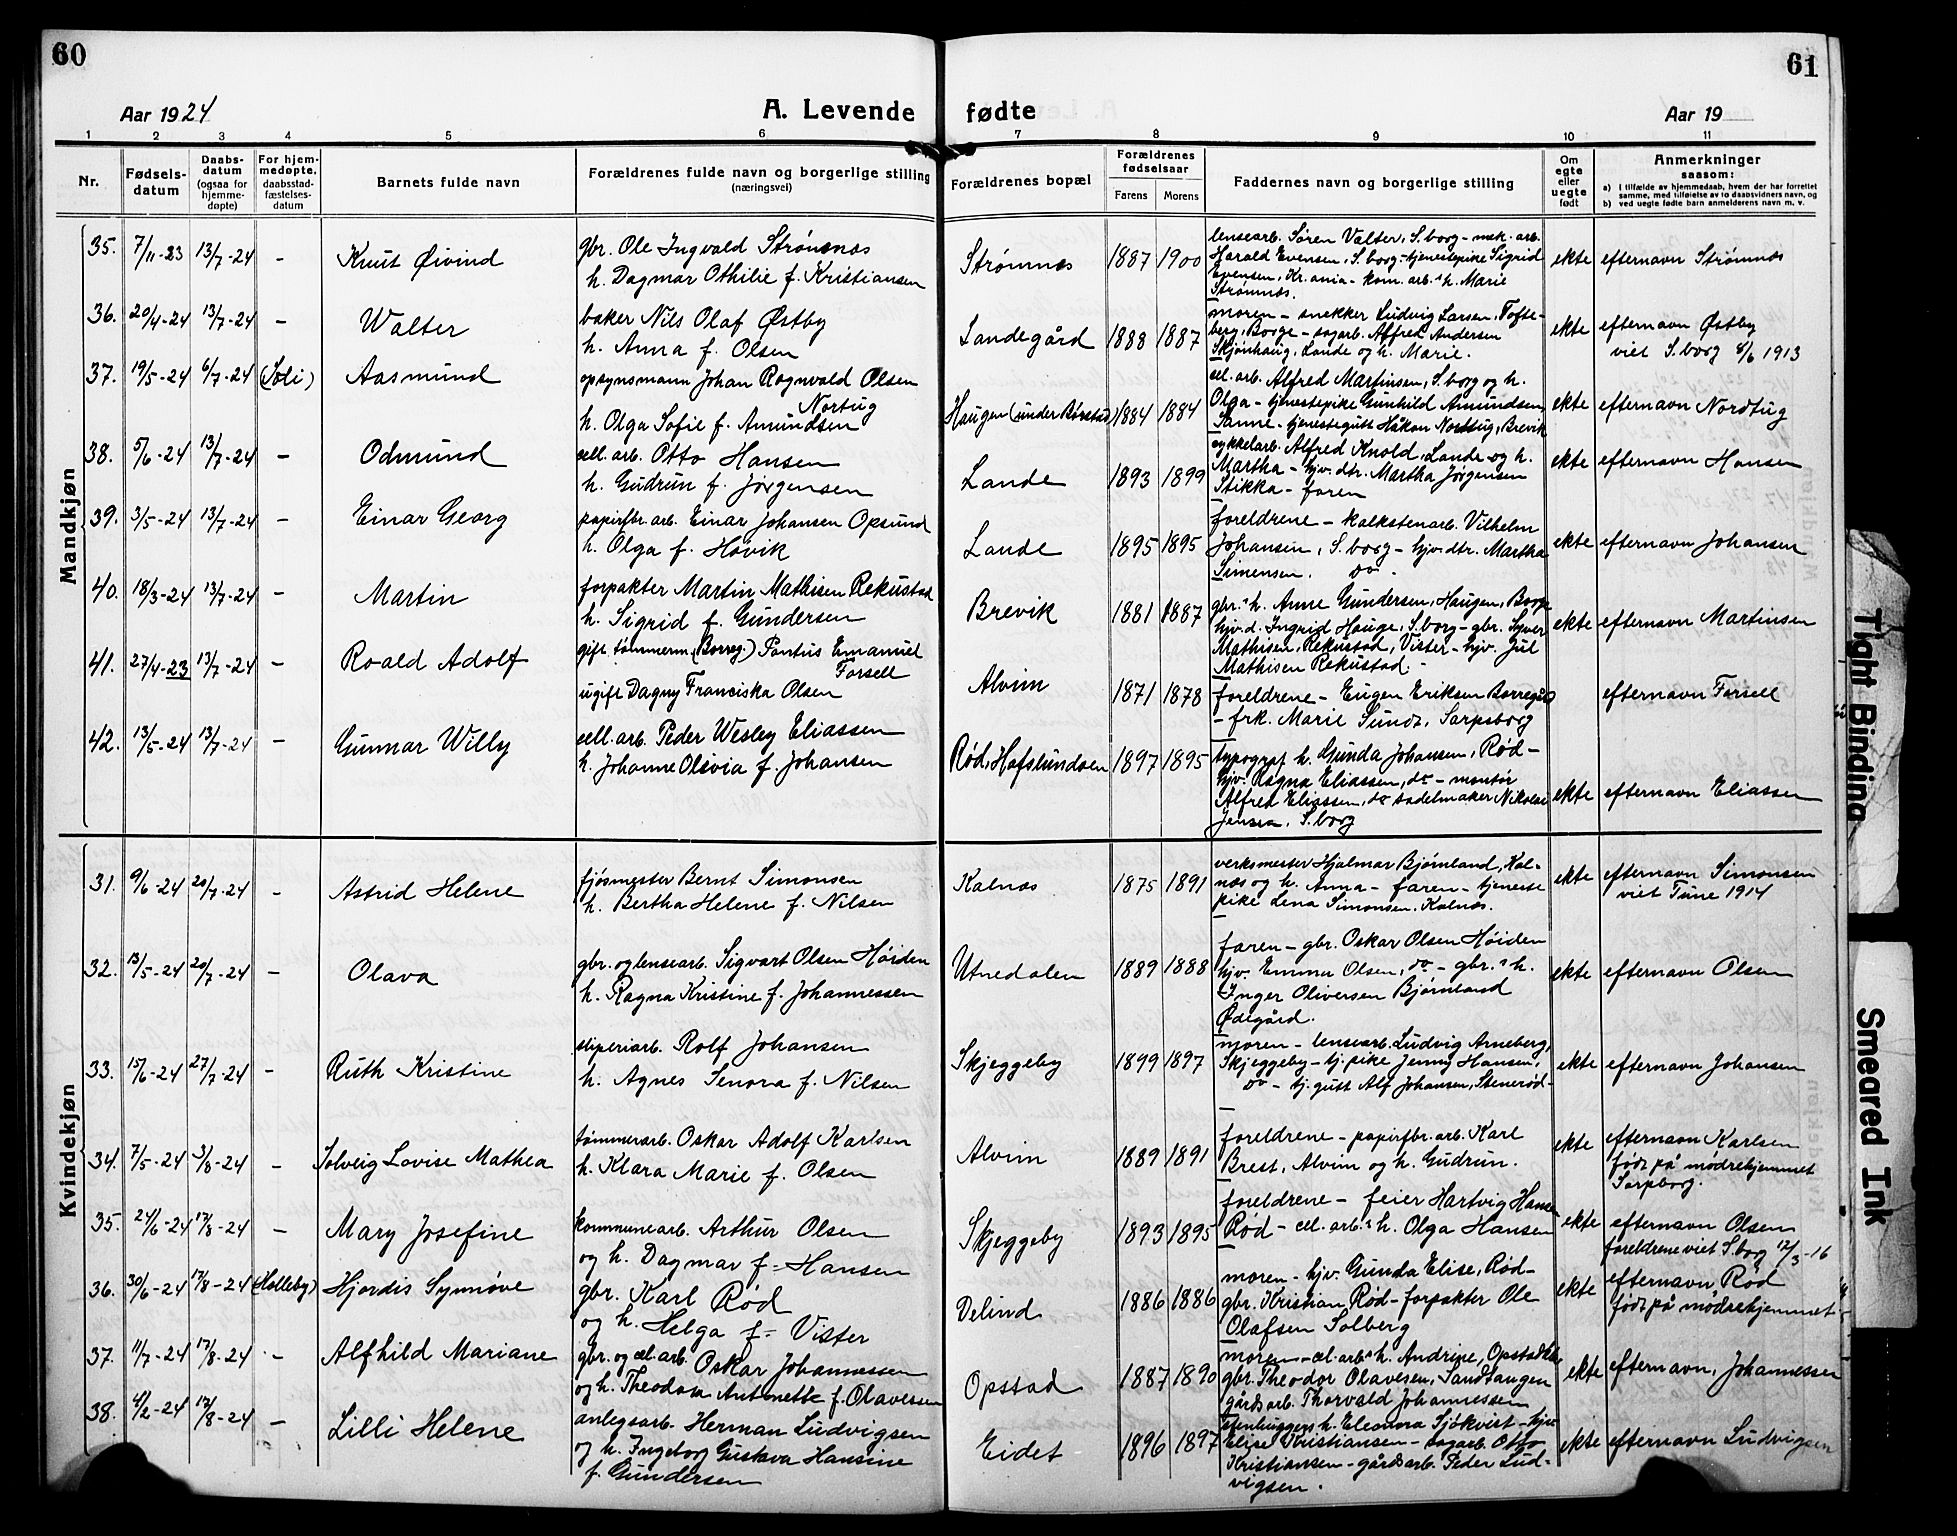 60
61
Aar 1924
A. Levende
fødte
Aar 19
1 2 3 4 5 6 7 8 9 10 11
Nr.
Fødsels-
datum
Daabs-
datum
(ogsaa for
hjemme-
døpte)
For hjem-
medøpte,
daabsstad-
fæstelses-
datum
Barnets fulde navn
Forældrenes fulde navn og borgerlige stilling
(næringsvei)
Forældrenes bopæl
Forældrenes
fødselsaar
Farens Morens
Faddernes navn og borgerlige stilling
Om
egte
eller
uegte
født
Anmerkninger
saasom:
a) i tilfælde av hjemmedaab, hvem der har forrettet
samme, med tilføielse av to daabsvidners navn, og
b) ved uegte fødte barn anmelderens navn m. v.
Mandkjøn
35. 7/11-23 13/7-24 – Knut Øivind
gbr. Ole Ingvald Strømnæs
h. Dagmar Othilie f. Kristiansen
Strømnæs 1887 1900
lensearb. Søren Valter, S.borg – mek. arb.
Harald Evensen, S.borg – tjenestepike Sigrid
Evensen, Kr.ania – kom. arb.s h. Marie
Strømnæs.
ekte efternavn Strømnæs
36. 20/4-24 13/7-24 – Walter
baker Nils Olaf Østby
h. Anna f. Olsen
Landegård 1888 1887
moren – snekker Ludvig Larsen, Tofte-
berg, Borge – sagarb. Alfred Andersen
Skjønhaug, Lande og h. Marie.
ekte efternavn Østby
viet S.borg 8/6 1913
37. 19/5-24 6/7-24 (Soli) Aasmund
opsynsmann Johan Ragnvald Olsen
Nortug
h. Olga Sofie f. Amundsen
Haugen (under Børstad) 1884 1884
cel. arb. Alfred Martinsen, S.borg og h.
Olga – tjenestepike Gunhild Amundsen,
Sanne – tjenestegutt Håkon Nordtug, Brevik
ekte efternavn Nordtug
38. 5/6-24 13/7-24 – Odmund
cell. arb. Otto Hansen
h. Gudrun f. Jørgensen
Lande 1893 1899
sykkelarb. Alfred Knold, Lande og h.
Martha – hjv. dtr. Martha Jørgensen
Stikka – faren
ekte efternavn Hansen
39. 3/5-24 13/7-24 – Einar Georg
papirfbr. arb. Einar Johansen Opsund
h. Olga f. Høvik
Lande 1895 1895
foreldrene – kalkstenarb. Vilhelm
Johansen, S.borg – hjv. dtr. Martha
Simensen. do.
ekte efternavn Johansen
40. 18/3-24 13/7-24 – Martin
forpakter Martin Mathisen Rekustad
h. Sigrid f. Gundersen
Brevik 1881 1887
gbr.s h. Anne Gundersen, Haugen, Borge
hjv. d. Ingrid Hauge, S.borg – gbr. Syver
Mathisen, Rekustad, Vister – hjv. Jul
Mathisen Rekustad. –
ekte efternavn Martinsen
41. 27/4-23 13/7-24 – Roald Adolf
gift tømmerm. (Borreg.) Pontus Emanuel
Forsell
ugift Dagny Franciska Olsen
Alvim 1871 1878
foreldrene – Eugen Eriksen Borregård
– frk. Marie Sundt, Sarpsborg
efternavn Forsell
42. 13/5-24 13/7-24 – Gunnar Willy
cell. arb. Peder Wesley Eliassen
h. Johanne Olovia f. Johansen
Rød, Hafslundsøen 1897 1895
typograf h. Gunda Johansen, Rød –
hjv. Ragna Eliassen, do – montør
Alfred Eliassen, do sadelmaker Nikolai
Jensen, S.borg
ekte efternavn Eliassen
Kvindekjøn
31. 9/6-24 20/7-24 – Astrid Helene
fjøsmester Bernt Simonsen
h. Bertha Helene f. Nilsen
Kalnæs 1875 1891
verksmester Hjalmar Bjørnland, Kal-
næs og h. Anna – faren – tjeneste
pike Lena Simonsen, Kalnæs.
ekte efternavn Simonsen
viet Tune 1914
32. 13/5-24 20/7-24 – Olava
gbr. og lensearb. Sigvart Olsen Høiden
h. Ragna Kristine f. Johannessen
Utnedalen 1889 1888
faren – gbr. Oskar Olsen Høiden
hjv. Emma Olsen, do – gbr.s h.
Inger Oliversen Bjørnland
Ødegård.
ekte efternavn Olsen
33. 15/6-24 27/7-24 – Ruth Kristine
sliperiarb. Rolf Johansen
h. Agnes Senora f. Nilsen
Skjeggeby 1899 1897
moren – lensearb. Ludvig Arneberg,
Skjeggeby – tj. pike Jenny Hansen,
do – tj. gutt Alf Johansen, Stenerød –
ekte efternavn Johansen
34. 7/5-24 3/8-24 – Solveig Lovise Mathea
tømmerarb. Oskar Adolf Karlsen
h. Klara Marie f. Olsen
Alvim 1889 1891
foreldrene – papirfbr. arb. Karl
Brest, Alvim og h. Gudrun.
ekte efternavn Karlsen
født på mødrehjemmet
Sarpborg.
35. 24/6-24 17/8-24 – Mary Josefine
kommunearb. Arthur Olsen
og h. Dagmar f. Hansen
Skjeggeby 1893 1895
foreldrene – feier Hartvig Hansen
Rød – cel. arb.s h. Olga Hansen
ekte efternavn Olsen
foreldrene viet S.borg 12/3-16
36. 30/6-24 17/8-24 (Holleby) Hjordis Synnøve
gbr. Karl Rød
og h. Helga f. Vister
Delind 1886 1886
moren – hjv. Gunda Elise, Rød –
gbr. Kristian Rød – forpakter Ole
Olafsen Solberg
ekte efternavn Rød
født på mødrehjemmet
37. 11/7-24 17/8-24 – Alfhild Mariane
gbr. og cel. arb. Oskar Johannessen
og h. Theodora Antonette f. Olavesen
Opstad 1887 1890
moren – cel. arb.s h. Andrine, Opstad
gbr. Theodor Olavesen, Sandtangen
gårds arb. Thorvald Johannessen
ekte efternavn, Johannessen
38. 4/2-24 17/8-24 – Lilli Helene
anlegsarb. Herman Ludvigsen
og h. Ingeborg Gustava Hansine
f. Gundersen
Eidet 1896 1897
stenhuggers h. Eleonora Sjøkvist – hjv
Elise Kristiansen – sagarb. Otto
Kristiansen – gårdsarb. Peder Lud-
vigsen.
ekte efternavn Ludvigsen
Tight Binding
Smeared Ink